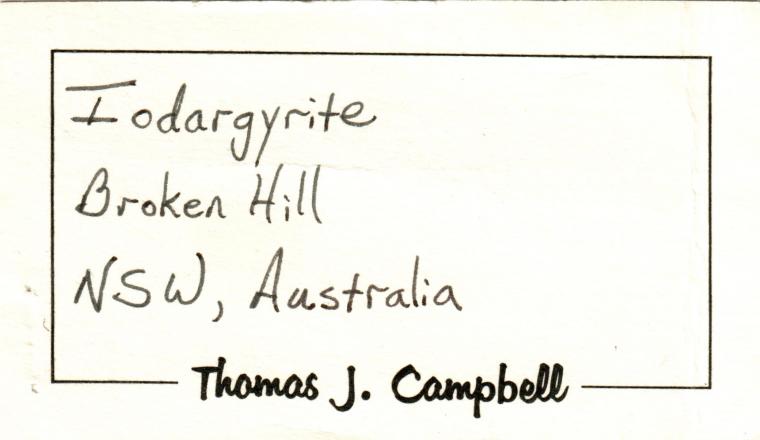 Iodargyrite
Broken Hill
NSW, Australia
Thomas J. Campbell